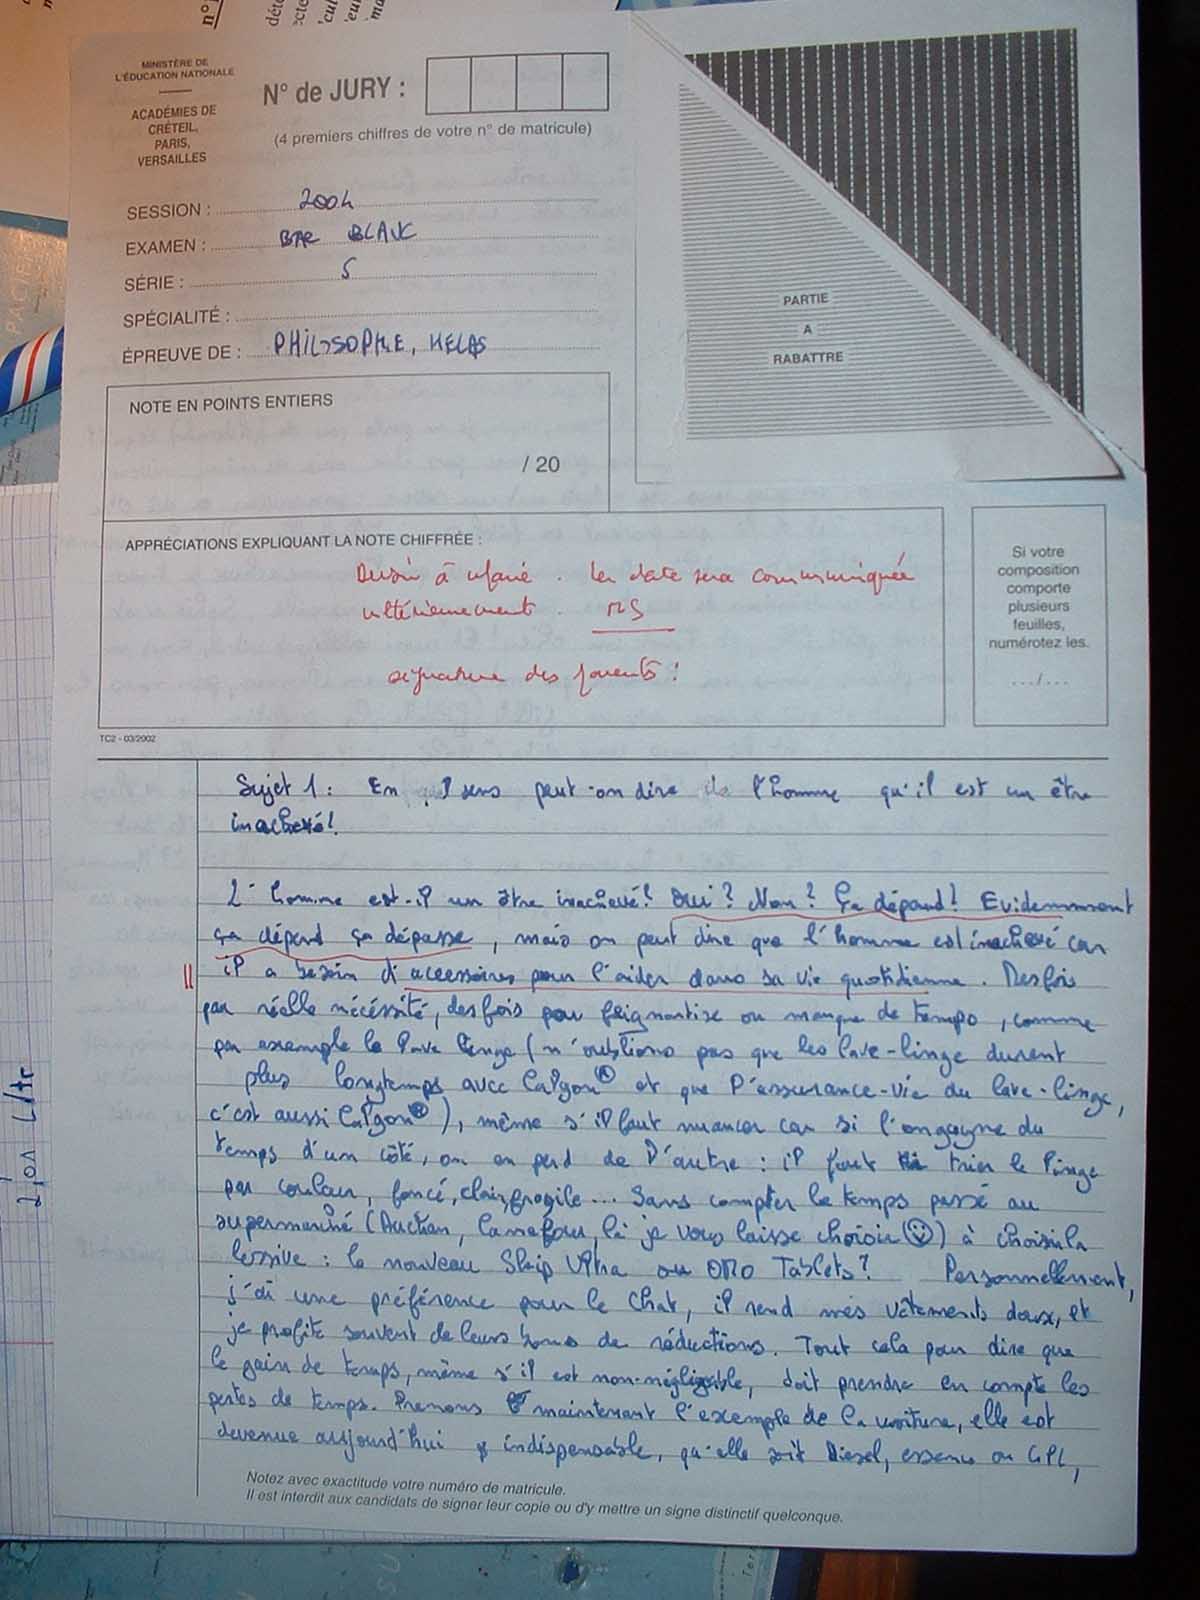 MINISTÈRE DE
L'ÉDUCATION NATIONALE
ACADÉMIES DE
CRÉTEIL,
PARIS,
VERSAILLES
N° de JURY :
(4 premiers chiffres de votre n° de matricule)
SESSION : 2004
EXAMEN : BAC BLANC
SÉRIE : S
SPÉCIALITÉ :
ÉPREUVE DE : PHILOSOPHIE, HELAS
PARTIE
A
RABATTRE
NOTE EN POINTS ENTIERS
/ 20
APPRÉCIATIONS EXPLIQUANT LA NOTE CHIFFRÉE :
Devoir à refaire. La date sera communiquée
ultérieurement. MS
signature des parents :
Si votre
composition
comporte
plusieurs
feuilles,
numérotez les.
.../...
TC2 - 03/2002
Sujet 1 : En ql sens peut-on dire de l'homme qu'il est un être
inachevé!
L'homme est-il un être inachevé? Oui? Non? Ça dépend! Evidemmment
ça dépend ça dépasse, mais on peut dire que l'homme est inachevé car
il a besoin d'accessoires pour l'aider dans sa vie quotidienne. Desfois
par réelle nécessité, des fois pour feignantise ou manque de temps, comme
par exemple le lave linge (n'oublions pas que les lave-linge durent
plus longtemps avec Calgon® et que l'assurance-vie du lave-linge,
c'est aussi Calgon®), même s'il faut nuancer car si l'on gagne du
temps d'un côté, on en perd de l'autre : il faut trier le linge
par couleur, foncé, clair, fragile... Sans compter le temps passé au
supermarché (Auchan, Carrefour, là je vous laisse choisir ☺) à choisir la
lessive : le nouveau Skip Ultra ou OMO Tablets? Personnellement,
j'ai une préférence pour le Chat, il rend mes vêtements doux, et
je profite souvent de leurs bons de réductions. Tout cela pour dire que
le gain de temps, même s'il est non-négligeable, doit prendre en compte les
pertes de temps. Prenons maintenant l'exemple de la voiture, elle est
devenue aujourd'hui indispensable, qu'elle soit Diesel, essence ou GPL,
Notez avec exactitude votre numéro de matricule.
Il est interdit aux candidats de signer leur copie ou d'y mettre un signe distinctif quelconque.